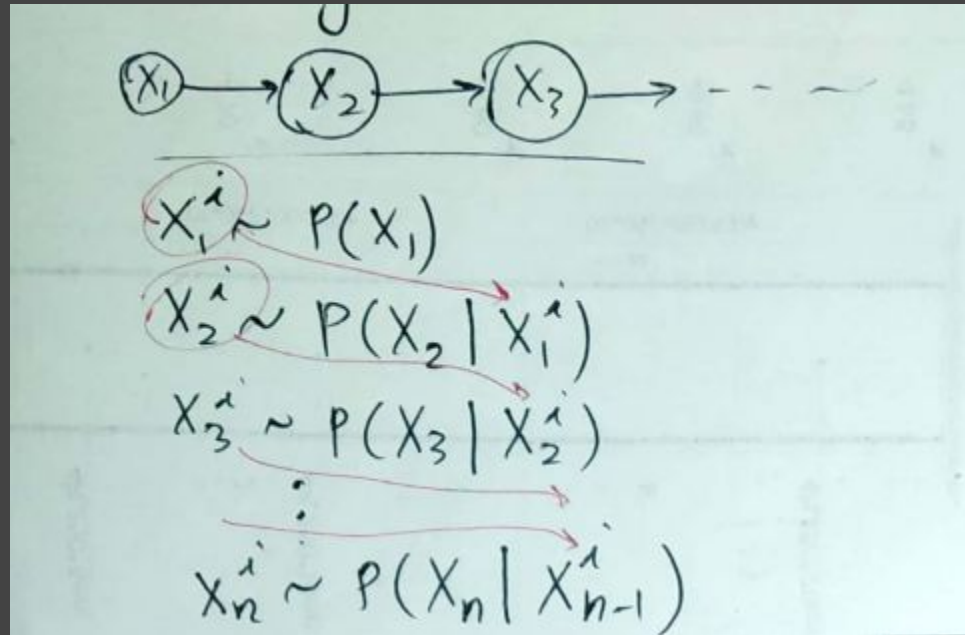 X₁ → X₂ → X₃ → - - -
X₁ⁱ ~ P(X₁)
X₂ⁱ ~ P(X₂ | X₁ⁱ)
X₃ⁱ ~ P(X₃ | X₂ⁱ)
⋮
Xₙⁱ ~ P(Xₙ | Xₙ₋₁ⁱ)